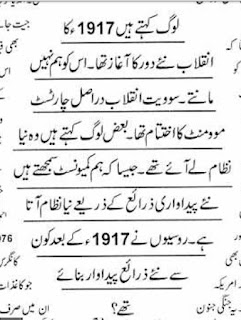 لوگ کہتے ہیں 1917ء کا
انقلاب نئے دور کا آغاز تھا۔ اس کو ہم نہیں
مانتے۔ سوویت انقلاب دراصل چارٹسٹ
موومنٹ کا اختتام تھا۔ بعض لوگ کہتے ہیں وہ نیا
نظام لے آئے تھے۔ جیسا کہ ہم کمیونسٹ سمجھتے ہیں
نئے پیداواری ذرائع کے ذریعے نیا نظام آتا
ہے۔ روسیوں نے 1917ء کے بعد کون
سے نئے ذرائع پیداوار بنائے
تھے؟